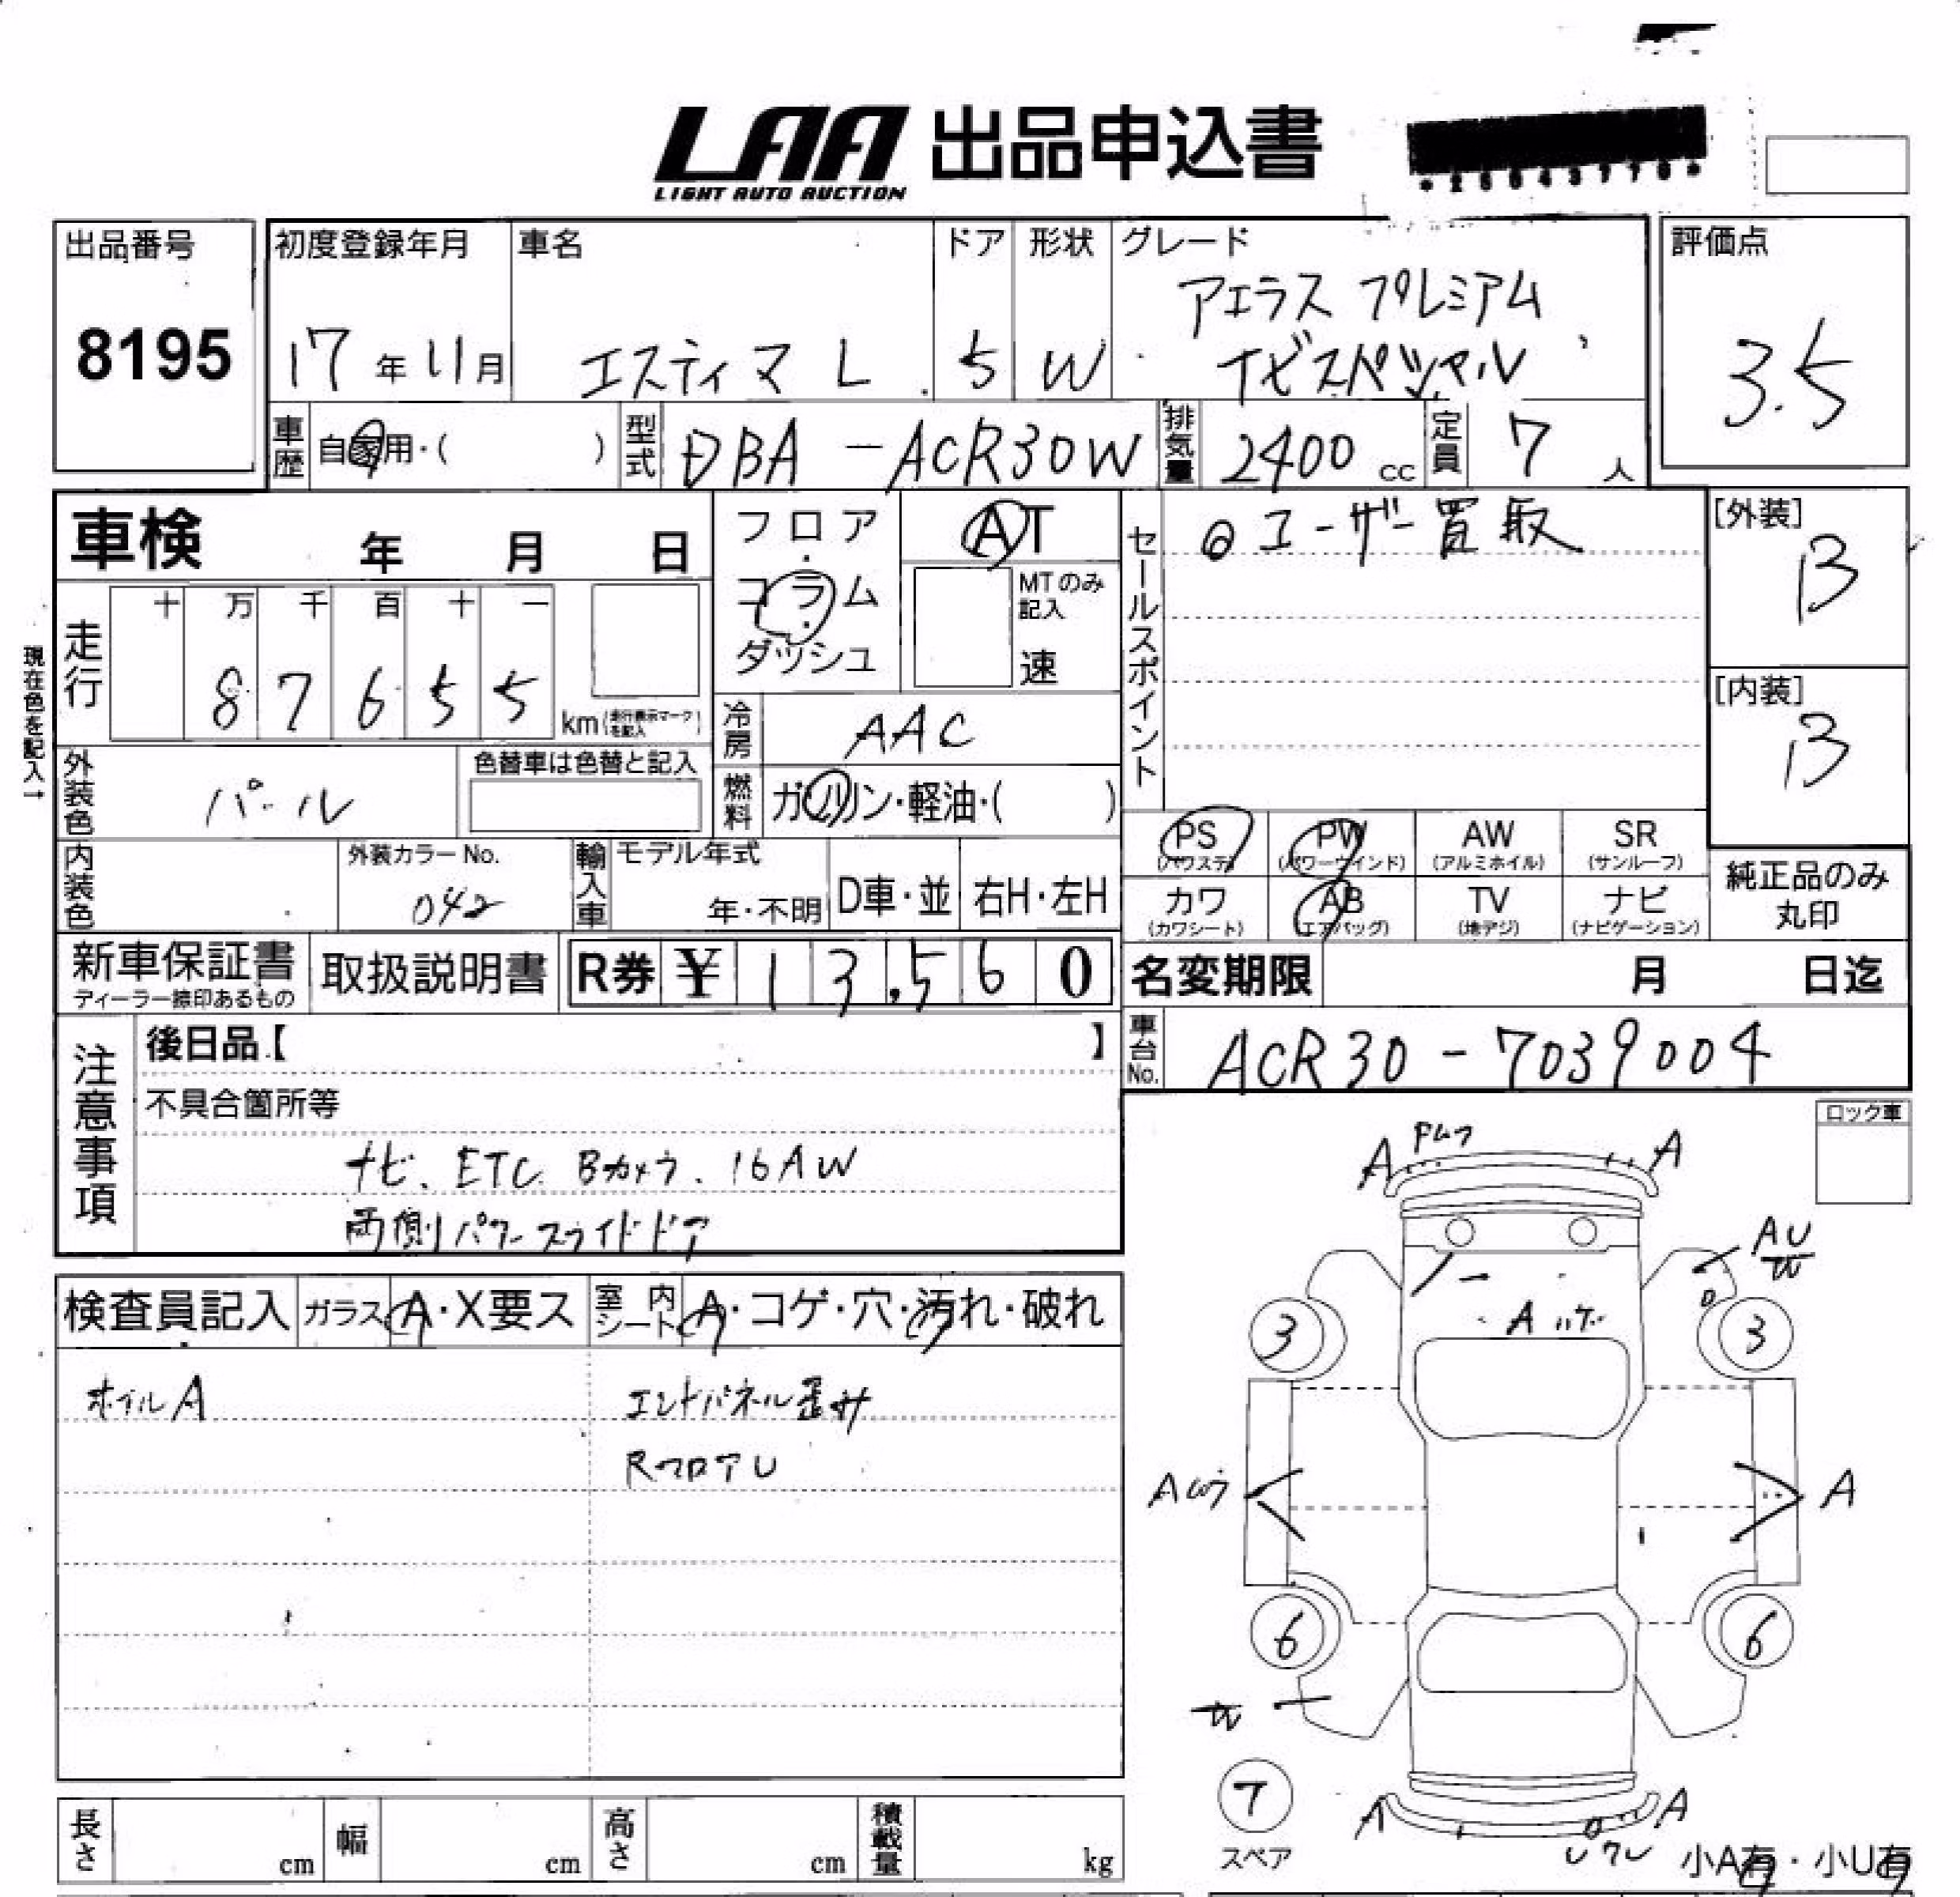 LAA 出品申込書
LIGHT AUTO AUCTION
*25043770*
出品番号
8195
初度登録年月
17年11月
車名
エスティマ L
ドア
5
形状
W
グレード
アエラス プレミアム
ナビスペシャル
評価点
3.5
車歴
自家用・( )
型式
DBA-ACR30W
排気量
2400 cc
定員
7人
車検 年 月 日
フロア・コラム・ダッシュ
AT
MTのみ記入
速
セールスポイント
◎ユーザー買取
[外装]
B
[内装]
B
現在色を記入→
走行
十 万 千 百 十 一
8 7 6 5 5
km(走行表示マークを記入)
冷房
AAC
外装色
パール
色替車は色替と記入
燃料
ガソリン・軽油・( )
内装色
外装カラーNo.
042
輸入車
モデル年式
年・不明
D車・並
右H・左H
PS (パワステ)
PW (パワーウインド)
AW (アルミホイル)
SR (サンルーフ)
カワ (カワシート)
AB (エアバッグ)
TV (地デジ)
ナビ (ナビゲーション)
純正品のみ丸印
新車保証書
ディーラー捺印あるもの
取扱説明書
R券 ¥ 13,560
名変期限 月 日迄
車台No.
ACR30-7039004
注意事項
後日品【 】
不具合箇所等
ナビ、ETC Bカメラ、16AW
両側パワースライドドア
ロック車
検査員記入
ガラス A・X要ス
室内シート A・コゲ・穴・汚れ・破れ
ホイルA
エンドパネル歪み
RフロアU
A
A
AU
W
A ハゲ
3
3
A
A
6
6
W
7
スペア
A
A
小A有・小U有
長さ cm
幅 cm
高さ cm
積載量 kg